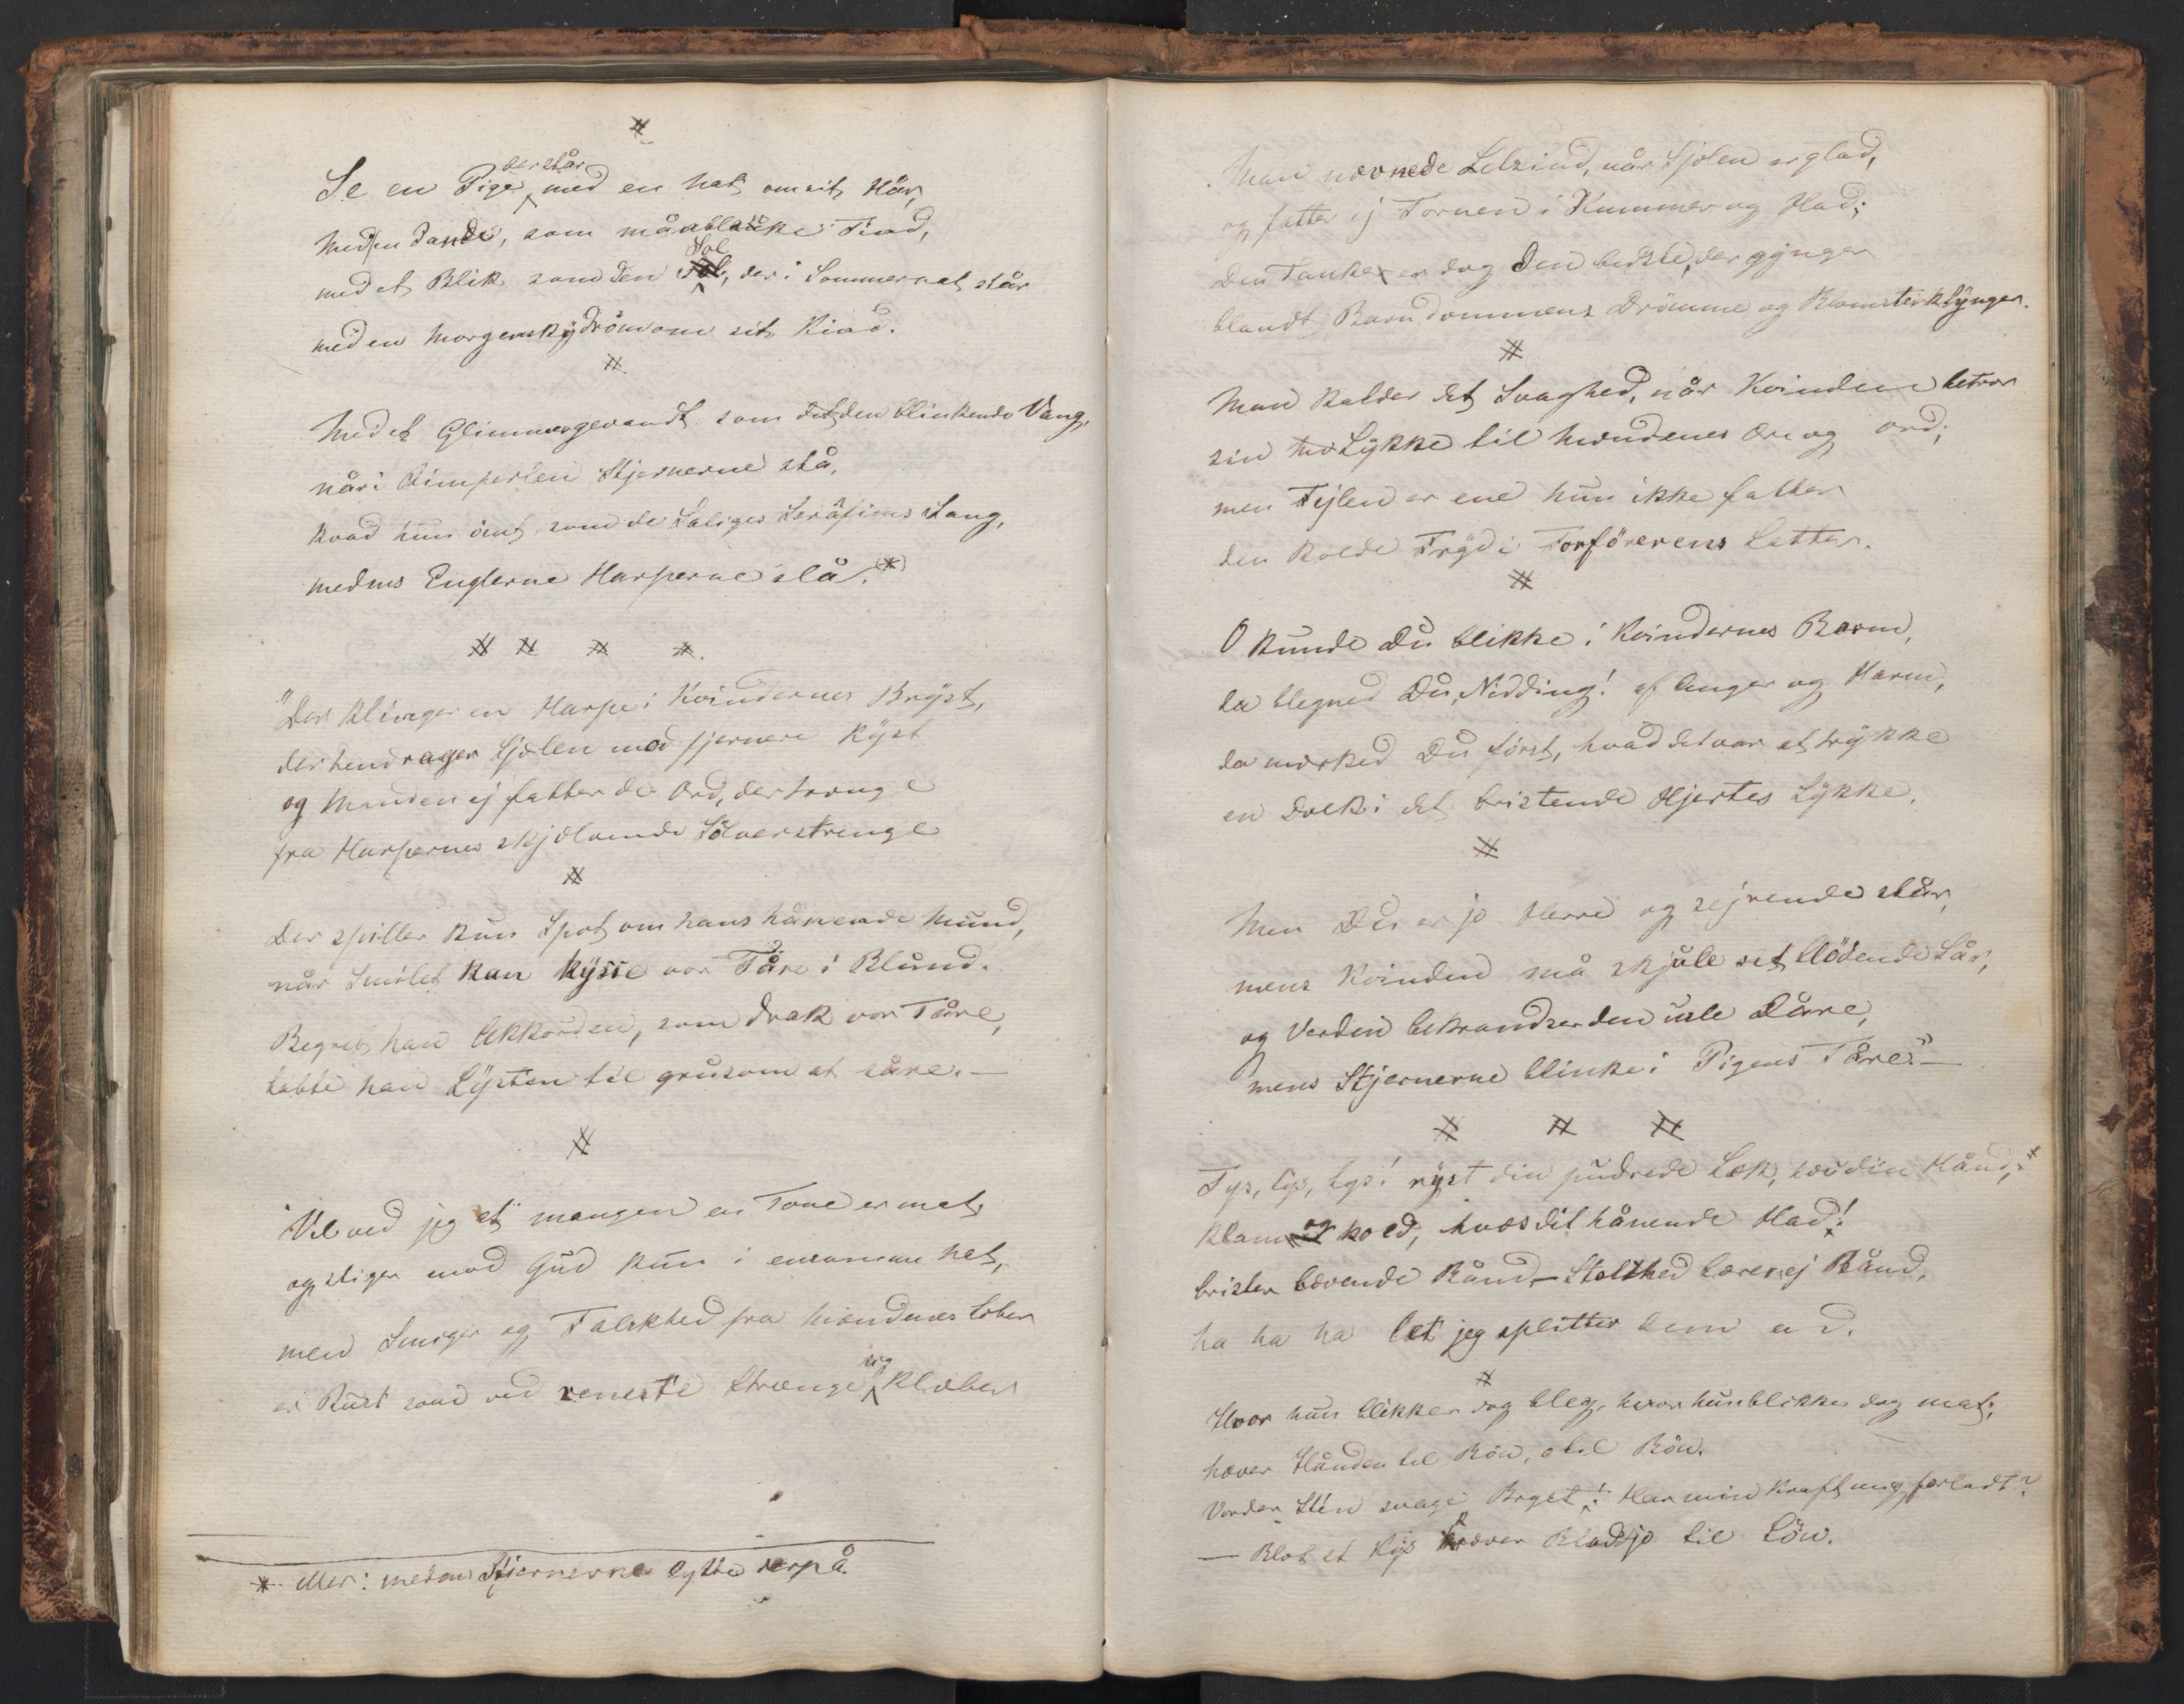 #
Se en Pige der står med en hat om sit Hår,
Med en Pande, som måneblanke Tind,
med et Blik som den Sol, der i Sommernat står
med en Morgenskydröm om sit Kind.
#
Med et Glimmergevandt som den blinkende Vang,
når i Rimperlen Stjernerne stå,
kvad hun ömt som de Saliges Serafims Sang,
medens Englerne Harperne slå. *)
# # # #
"Der klinger en Harpe i Kvindernes Bryst,
der hendrager Sjælen mod fjernere Kyst
og Manden ej fatter de Ord, der trænge
fra Harpernes skjælvende Sölverstrenge
#
Der spiller kun Spot om hans hånende Mund,
når Smilet kan kysse vor Tåre i Blund.
Begreb han Akkorden, som drak vor Tåre,
tabte han Lysten til grusom at såre. —
#
Vel ved jeg at mangen en Tone er mat,
og stiger mod Gud kun i ensomme Nat,
men Smiger og Falskhed fra Mændenes Læber
er Rust som ved reneste Strænge sig klæber
* eller: medens Stjernerne lytte derpå.
Man nævnede Letsind, når Sjælen er glad,
og fatter ej Tornen i Kummer og Had;
Den Tanke er dog den bedste, der gynger
blandt Barndommens Drömme og Blomsterklynger.
#
Man kalder det Svaghed, når Kvinden betror
sin Lykke til Mændenes Ære og Ord;
men Fejlen er end hun ikke fatter
den kolde Fryd i Forförerens Latter.
#
O kunde Du blikke i Kvindernes Barm,
da blegned Du, Nidding! af Anger og Harm,
da mærked Du först, hvad det var at trykke
en Dolk i det bristende Hjertes Lykke.
#
Men Du er jo Herre og sejrende står,
mens Kvinden må skjule sit blödende Sår,
og Verden bekrandser den usle Dåre,
mens Stjernerne blinke i Pigens Tåre." —
# # #
Tys, tys, tys! ryst din pudrede Lok, løv din Hånd,
klam og kold, hvæs dit hånende Had!
brister bævende Bånd, — Stolthed bærer ej Bånd,
ha ha ha let jeg splitter dem ad.
#
Hvor hun blikker dog bleg, hvor hun blikker dog mat,
hæver Hånden til Bön, o til Bön.
Vorder Stén svage Bryst! Har min Kraft mig forladt?
— Blot et Kys kræver Blod jo til Lön.